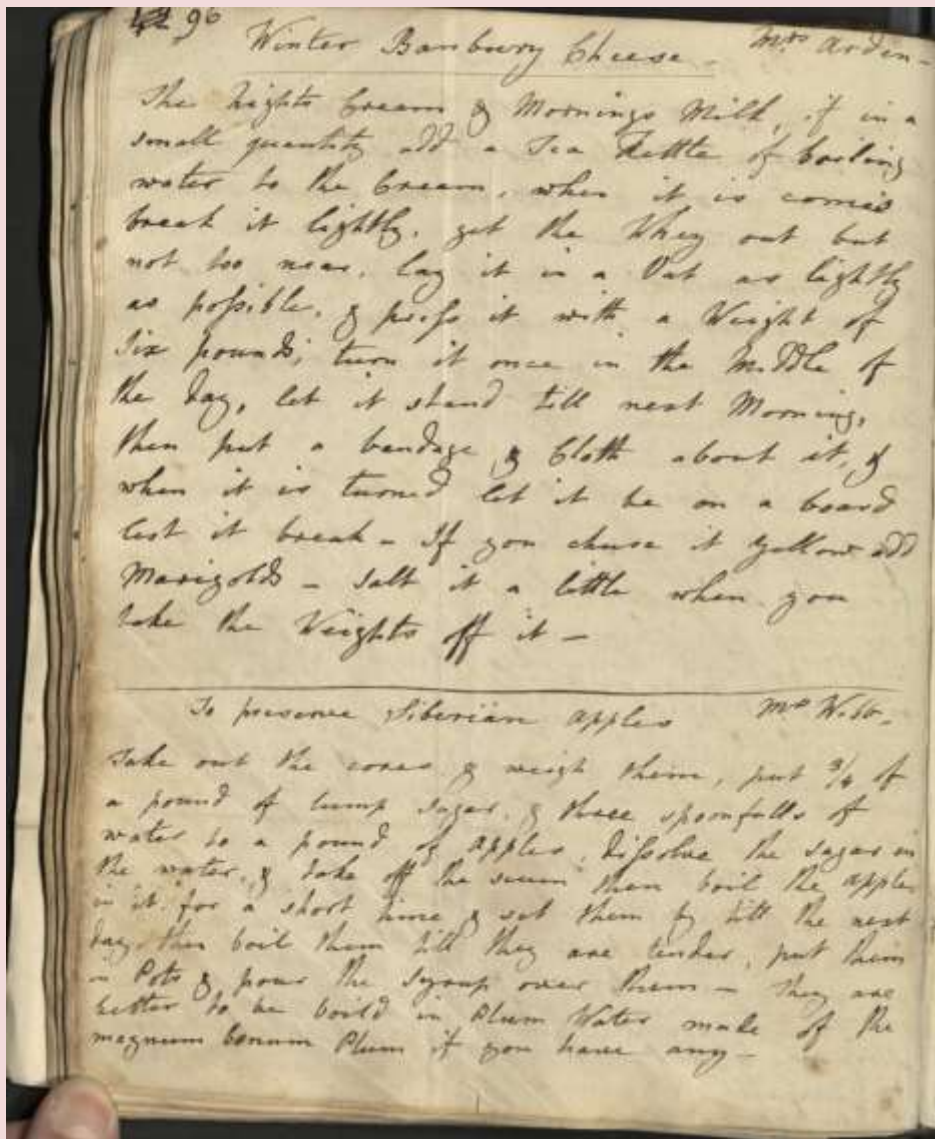 96
Winter Banbury Cheese - Mrs Arden -
The Nights Cream & Mornings Milk, if in a
small quantity add a Tea Kettle of boiling
water to the Cream, when it is comes
break it lightly, get the Whey out but
not too near, lay it in a Vat as lightly
as possible, & press it with a Weight of
Six pounds; turn it once in the Middle of
the Day, let it stand till next Morning,
then put a bandage & Cloth about it, &
when it is turned let it be on a board
lest it break - If you chuse it yellow add
Marigolds - salt it a little when you
take the Weights off it -
To preserve Siberian Apples Mrs
Take out the cores & weigh them, put 3/4 of
a pound of lump sugar, & three spoonfulls of
water to a pound of Apples, dissolve the sugar in
the water, & take off the scum then boil the apples
in it for a short time & set them by till the next
day, then boil them till they are tender, put them
in Pots & pour the syrup over them - They are
better to be boild in Plum Water made of the
magnum bonum Plum if you have any -